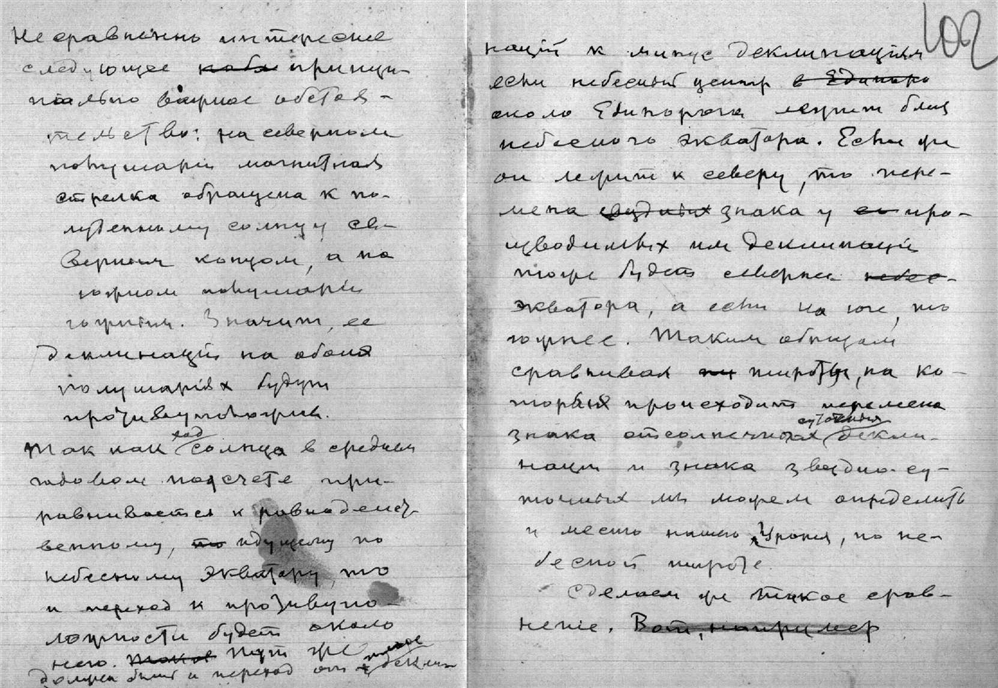 Несравненно интересне
следующее принци-
пиально важное обстоя-
тельство: на северном
полушаріи магнитная
стрелка обращена к по-
луденному солнцу се-
верным концом, а на
южном полушаріи
южным. Значит, ее
деклинаціи на обоих
полушаріях будут
противуположны.
Так как ход солнца в среднем
годовом подсчете при-
равнивается к равноденст-
венному, идущему по
небесному экватору, то
и переход к противупо-
ложности будет около
него. Тут же
должен быть и переход от плюс деклин
102
націй к минус деклинаціям
если небесный центр в Единоро
около Единорога лежит близ
небесного экватора. Если же
он лежит к северу, то пере-
мена звездных знака у про-
изводимых им деклинаціи
тоже будет севернее небес-
экватора, а если на юге, то
южнее. Таким образом
сравнивая широты, на ко-
торых происходит перемена
знака отсолнечных суточных декли-
нации и знака звездно-су-
точных мы можем определить
и место нашего Урана, по не-
бесной широте.
Сделаем же такое срав-
неніе. Вот, например